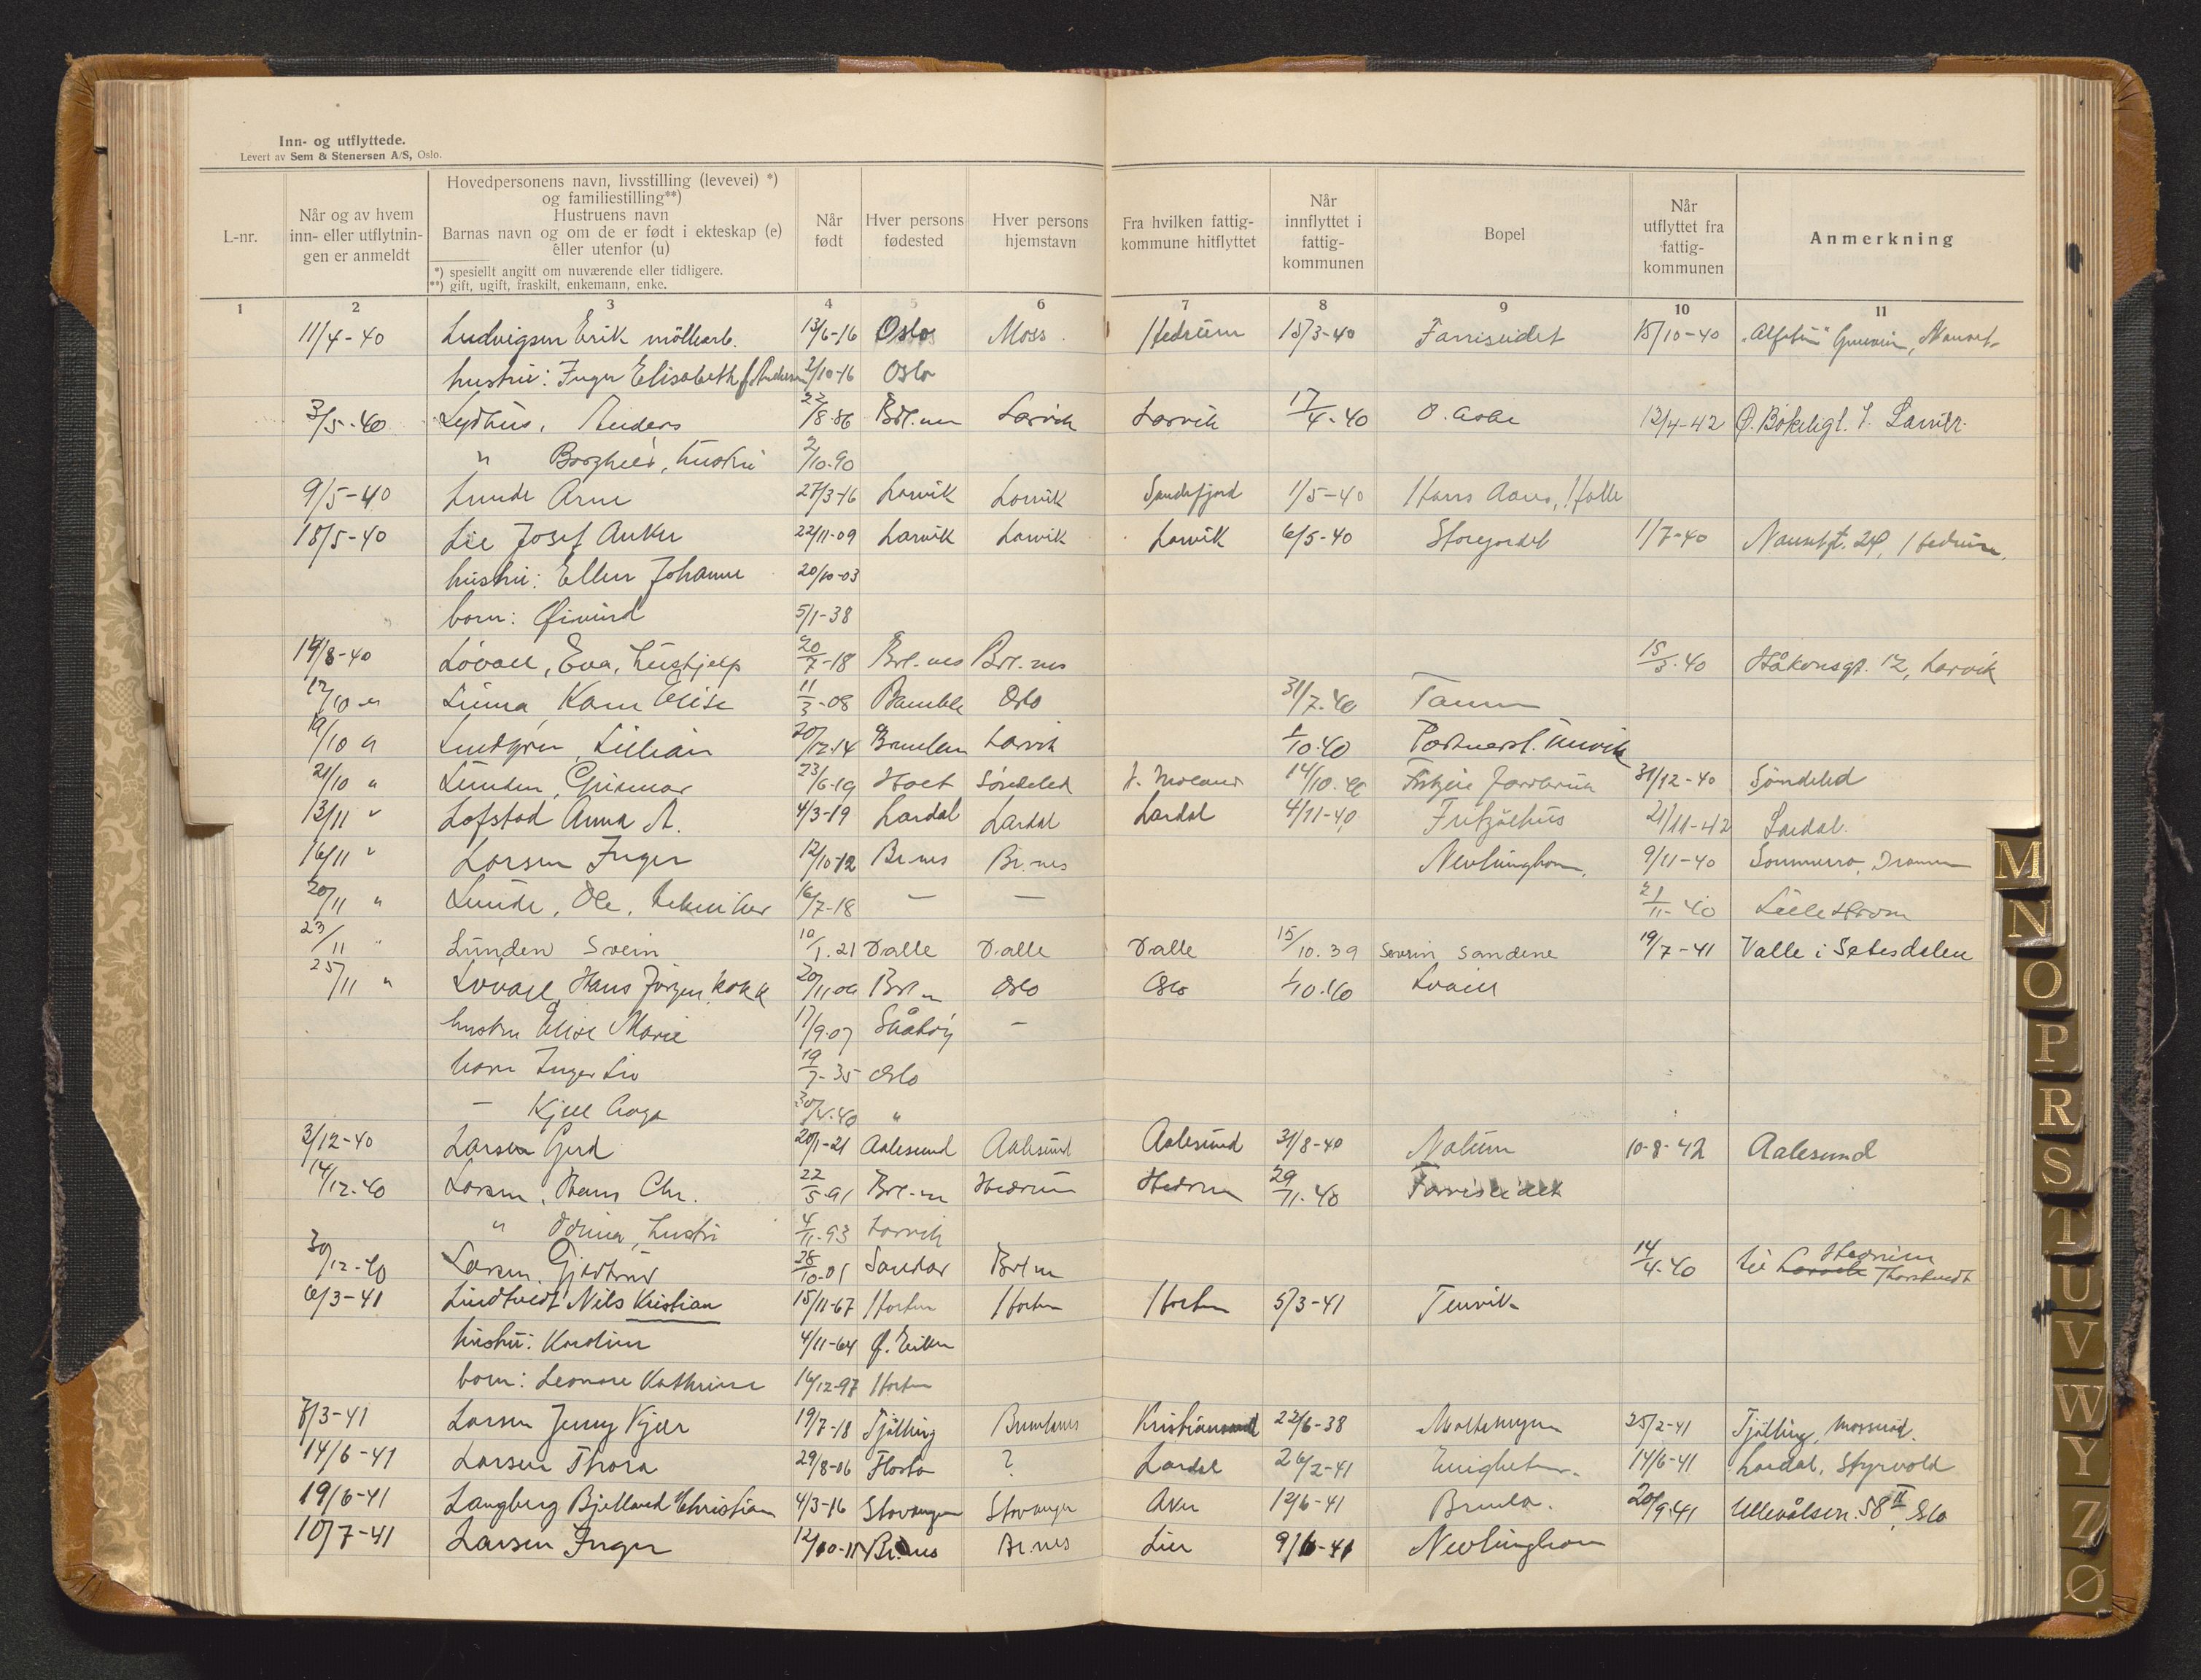 Inn- og utflyttede.
Levert av Sem & Stenersen A/S, Oslo.
L-nr.
Når og av hvem inn- eller utflytningen er anmeldt
Hovedpersonens navn, livsstilling (levevei) *)
og familiestilling**)
Hustruens navn
Barnas navn og om de er født i ekteskap (e)
eller utenfor (u)
*) spesiellt angitt om nuværende eller tidligere.
**) gift, ugift, fraskilt, enkemann, enke.
Når født
Hver persons fødested
Hver persons hjemstavn
Fra hvilken fattigkommune hitflyttet
Når innflyttet i fattigkommunen
Bopel
Når utflyttet fra fattigkommunen
Anmerkning
1 2 3 4 5 6 7 8 9 10 11
11/4-40 Ludvigsen Erik møllearb. 13/6-16 Oslo Moss Hedrum 15/3-40 Farriseidet 15/10-40
hustru: Inger Elisabeth 2/10-16 Oslo
3/5-40 Lydhus, Anders 22/8-86 Brl.nes Larvik Larvik 17/4-40 13/4-42 Ø. Bøkeligt. 1. Larvik
" Borghild, hustru 2/10-90
9/5-40 Lunde Arne 27/3-16 Larvik Larvik Sandefjord 1/5-40 Hans Aares, Halle
18/5-40 Lie Josef Anker 22/11-09 Larvik Larvik Larvik 6/5-40 Storejordet 1/7-40 Nansetgt. 24, Hedrum.
hustru: Ellen Johanne 20/10-03
barn: Øivind 5/1-38
14/8-40 Løvall, Eva, hushjelp 20/7-18 Brl.nes Brl.nes 15/3-40 Håkonsgt. 12, Larvik
17/10 " Linna Karen Elise 11/3-08 Bamble Oslo 31/7-40 Tanum
19/10 " Lindgren, Lillian 20/12-14 Brunlanes Larvik 1/10-40
21/10 " Lunden, Gunnar 23/6-19 Holt Søndeled 14/10-40 31/12-40 Søndeled
13/11 " Lofstad Anna A. 4/3-19 Lardal Lardal Lardal 4/11-40 Fritzøehus 21/11-42 Lardal.
16/11 " Larsen Inger 12/10-12 Br.nes Br.nes Nevlunghavn. 9/11-40
20/11 " Lunde, Ole, tekniker 16/7-18 — — 21/11-40 Lillestrøm
23/11 " Lunden Svein 10/1.21 Valle Valle Valle 15/10.39 Severin Sandene 19/7-41 Valle i Setesdalen
25/11 " Løvall, Hans Jørgen, kokk 20/11-06 Brl.n Oslo Oslo 1/10-40
hustru Elise Marie 17/9-07 Skåtøy —
barn Inger Liv 19/7-35 Oslo
— Kjell Aage "
3/12-40 Larsen Gerd 20/1-21 Aalesund Aalesund Aalesund 31/8-40 Nalum 10-8-42 Aalesund
14/12-40 Larsen, Hans Chr. 22/5-91 Brl.n Hedrum Hedrum 29/11-40 Farriseidet
" hustru 4/11-93 Larvik
30/12-40 Larsen, Gjertrud 28/10-01 Sandar Brl.n 14/4-40 til Larvik Hedrum
6/3-41 Lindtvedt Nils Kristian 15/11-67 Horten Horten Horten 5/3-41 Tenvik
hustru: Karoline 4/11-64 Ø. Eiker
barn: Leonore Kathrine 16/12-97 Horten
7/3-41 Larsen Jenny Kjær 19/7-18 Tjølling Brunlanes Kristiansand 22/6-38 25/2-41 Tjølling,
14/6-41 Larsen Thora 29/8-06 ? Lardal 26/2-41 Enigheten. 14/6-41 Lardal, Styrvold
19/6-41 Langberg Bjelland Christian 4/3-16 Stavanger Stavanger Aker 12/6-41 Brunla. 20/9-41 Ullevålsvn. 58 II, Oslo
10/7-41 Larsen Inger 12/10-11 Br.nes Br.nes Lier 9/6-41 Nevlunghavn
M
N
O
P
R
S
T
U
V
W
Y
Z
Ø